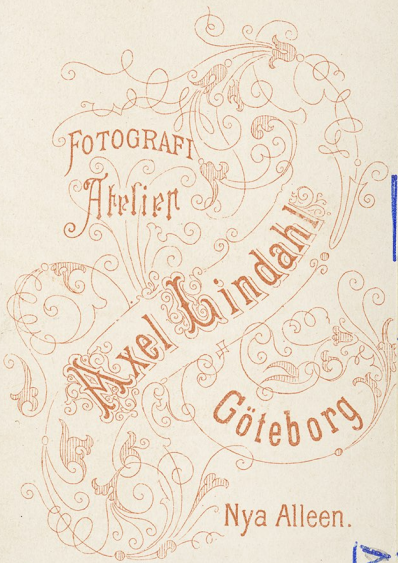 FOTOGRAFI
Atelier
Axel Lindahl
Göteborg
Nya Alleen.